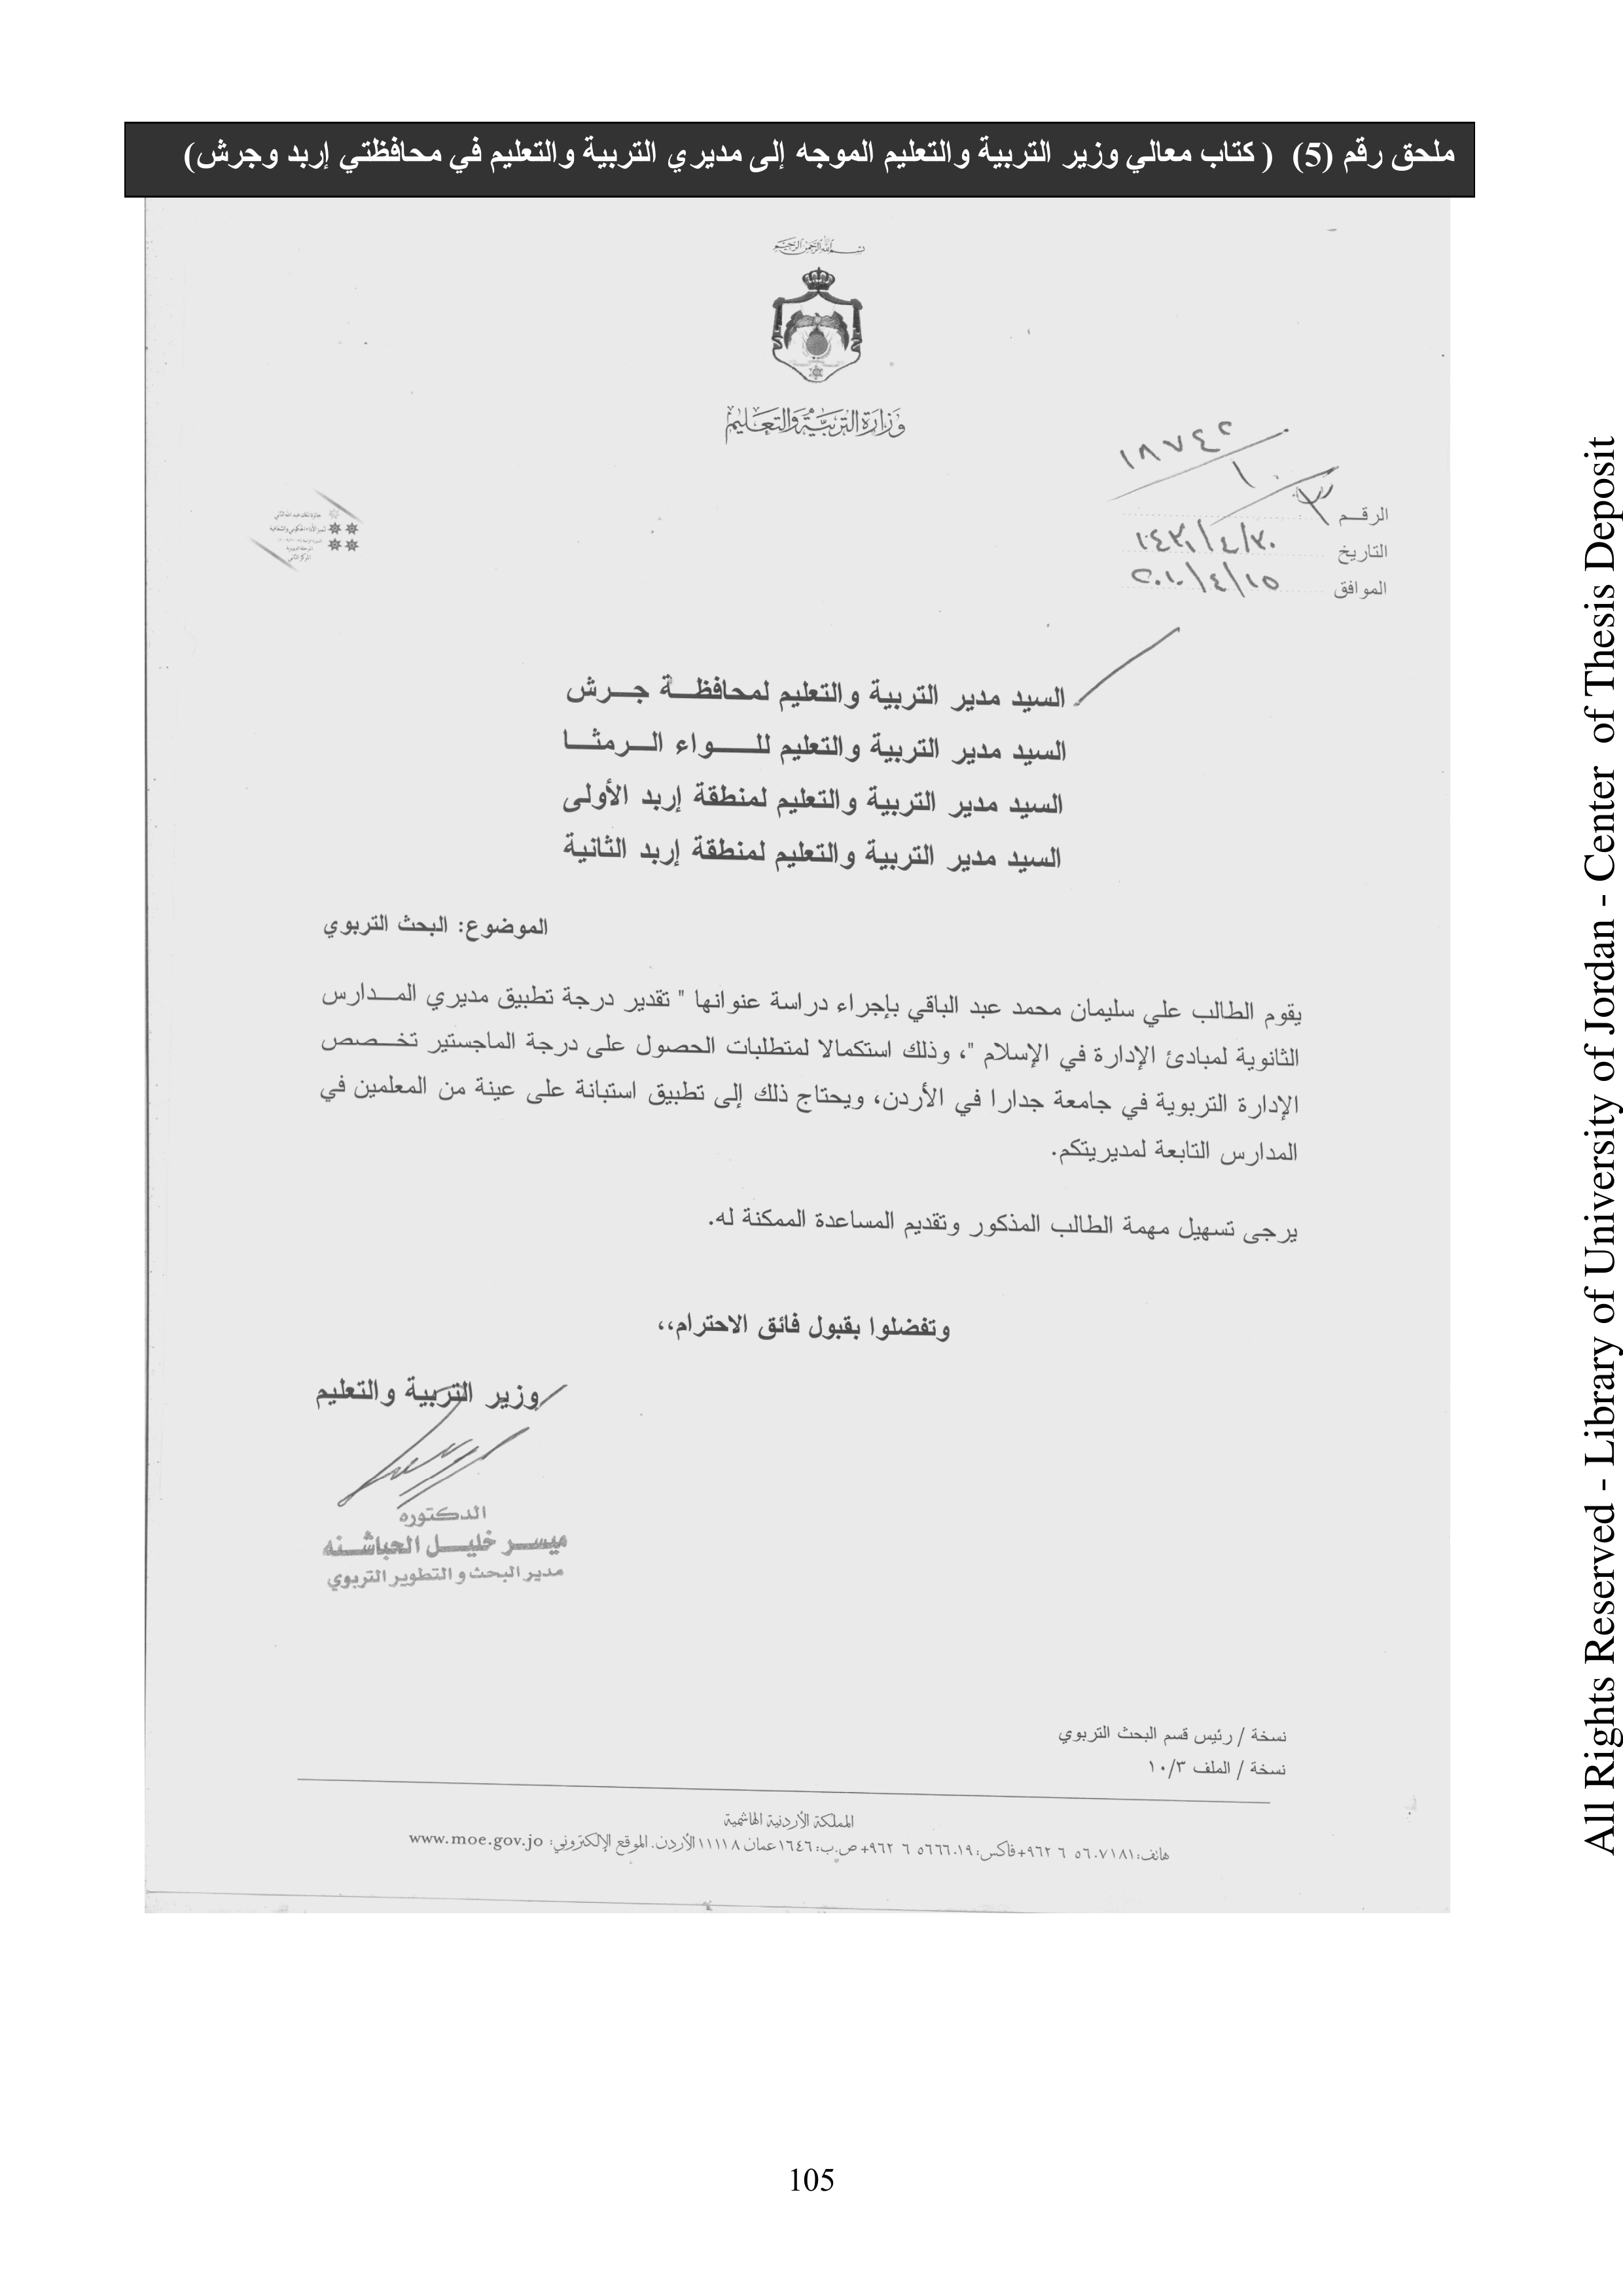 ملحق رقم (5) ( كتاب معالي وزير التربية والتعليم الموجه إلى مديري التربية والتعليم في محافظتي إربد وجرش)
بسم الله الرحمن الرحيم
وزارة التربية والتعليم
١٨٧٤٢
١٠
٣
الرقم
التاريخ ٣٠/٤/١٤٣١
الموافق ١٥/٤/٢٠١٠
السيد مدير التربية والتعليم لمحافظة جرش
السيد مدير التربية والتعليم للواء الرمثا
السيد مدير التربية والتعليم لمنطقة إربد الأولى
السيد مدير التربية والتعليم لمنطقة إربد الثانية
الموضوع: البحث التربوي
يقوم الطالب علي سليمان محمد عبد الباقي بإجراء دراسة عنوانها " تقدير درجة تطبيق مديري المدارس
الثانوية لمبادئ الإدارة في الإسلام "، وذلك استكمالا لمتطلبات الحصول على درجة الماجستير تخصص
الإدارة التربوية في جامعة جدارا في الأردن، ويحتاج ذلك إلى تطبيق استبانة على عينة من المعلمين في
المدارس التابعة لمديريتكم.
يرجى تسهيل مهمة الطالب المذكور وتقديم المساعدة الممكنة له.
وتفضلوا بقبول فائق الاحترام،،
وزير التربية والتعليم
الدكتوره
ميسر خليل الحباشنه
مدير البحث و التطوير التربوي
نسخة / رئيس قسم البحث التربوي
نسخة / الملف ١٠/٣
المملكة الأردنية الهاشمية
هاتف: ٥٦٠٧١٨١ ٦ ٩٦٢+ فاكس: ٥٦٦٦٠١٩ ٦ ٩٦٢+ ص.ب: ١٦٤٦ عمان ١١١١٨ الأردن. الموقع الإلكتروني: www.moe.gov.jo
105
All Rights Reserved - Library of University of Jordan - Center of Thesis Deposit